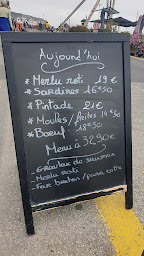 Aujourd'hui
* Merlu roti 19 €
* Sardines 16€50
* Pintade 21€
* Moules/frites 14€50
* Boeuf 18€50
Menu à 32,90€
- Merlu roti
- Far breton / pana cotta